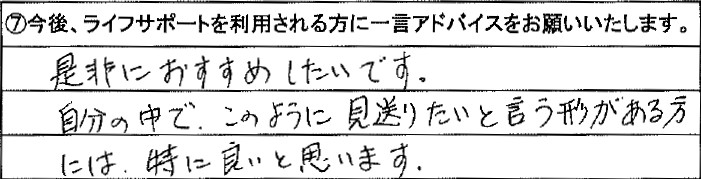 ⑦今後、ライフサポートを利用される方に一言アドバイスをお願いいたします。
是非におすすめしたいです。
自分の中で、このように見送りたいと言う形がある方
には、特に良いと思います。